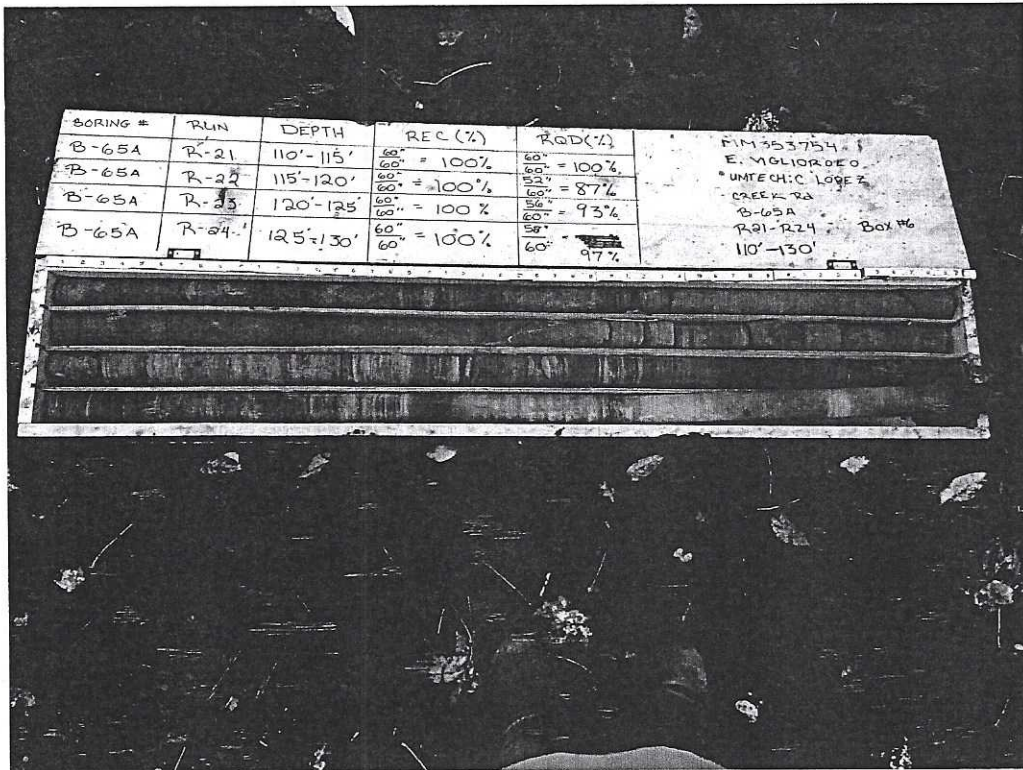 BORING # RUN DEPTH REC (%) RQD (%)
B-65A R-21 110'-115' 60"/60" = 100% 60"/60" = 100%
B-65A R-22 115'-120' 60"/60" = 100% 52"/60" = 87%
B-65A R-23 120'-125' 60"/60" = 100% 56"/60" = 93%
B-65A R-24 125'-130' 60"/60" = 100% 58"/60" = 97%
MM353754
E. VIGLIOROLO
UMTECH: C LOPEZ
CREEK Rd
B-65A
R21-R24 BOX #6
110'-130'